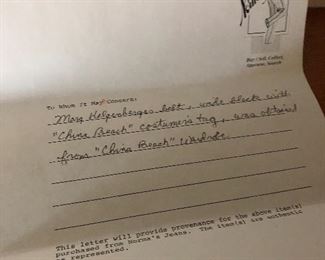 Buy / Sell, Collect,
Operator, Search
To Whom It May Concern:
Marg Helgenberger belt, wide black with
"China Beach" costumer's tag, was obtained
from "China Beach" Wardrobe.
This letter will provide provenance for the above item(s)
purchased from Norma's Jeans. The item(s) are authentic
as represented.